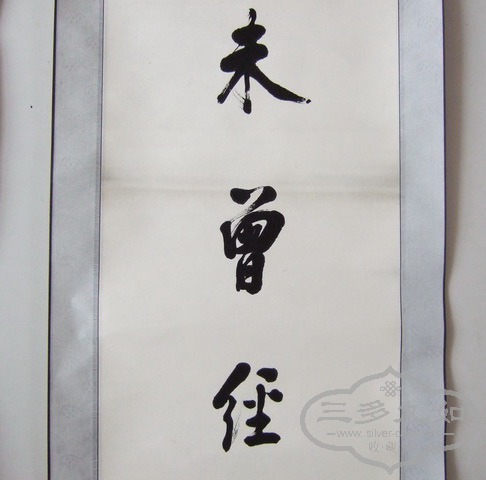 未曾經
三多
www.silver-